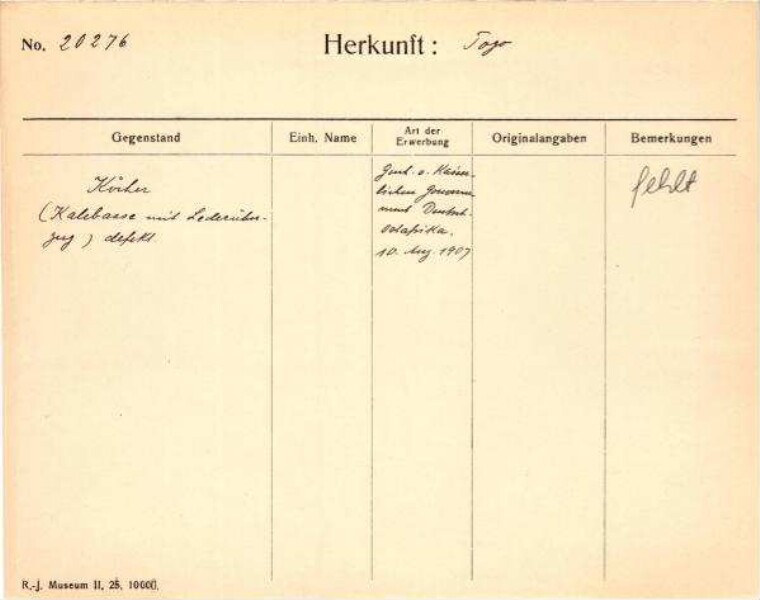 No. 20276 Herkunft: Togo
Gegenstand Einh. Name Art der Erwerbung Originalangaben Bemerkungen
Köcher
(Kalebasse mit Lederüber-
zug) defekt.
Gesch. v. Kaiser-
lichen Gouverne-
ment Deutsch-
Ostafrika.
10. Aug. 1907
fehlt
R.-J. Museum II, 25. 10000.